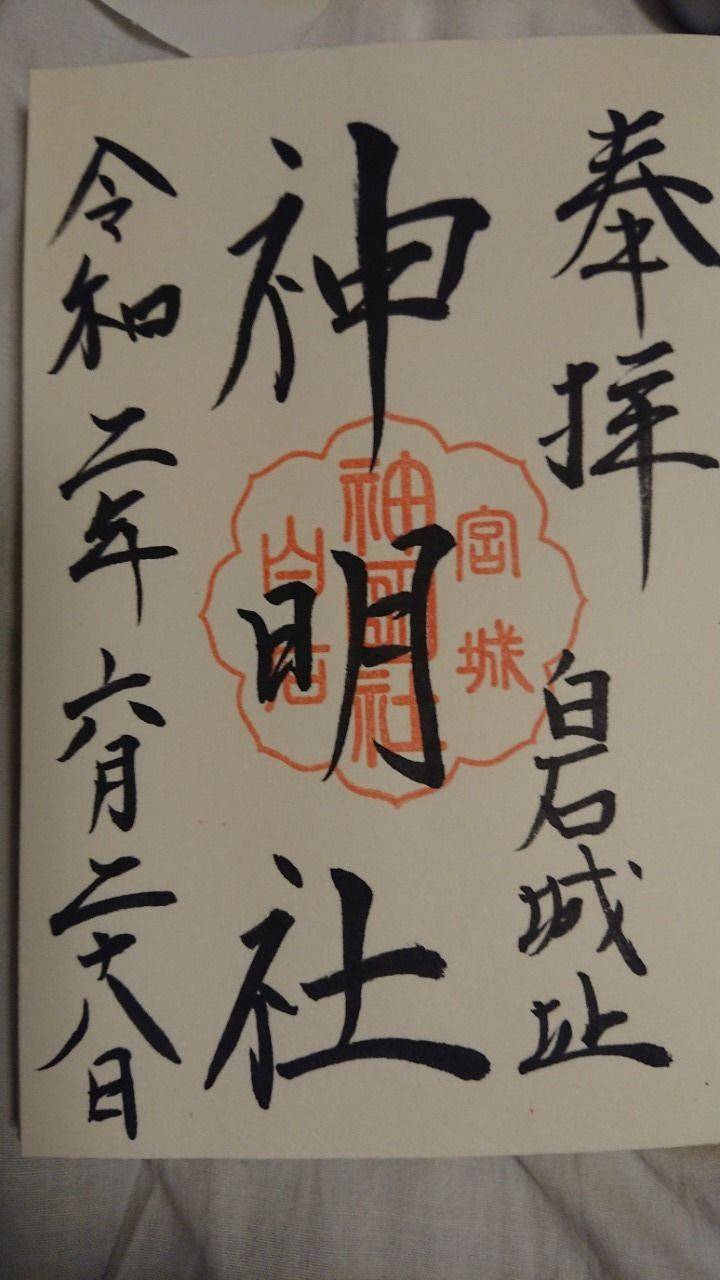 奉拝
白石城址
神明社
宮城
神明社
白石
令和二年六月二十八日